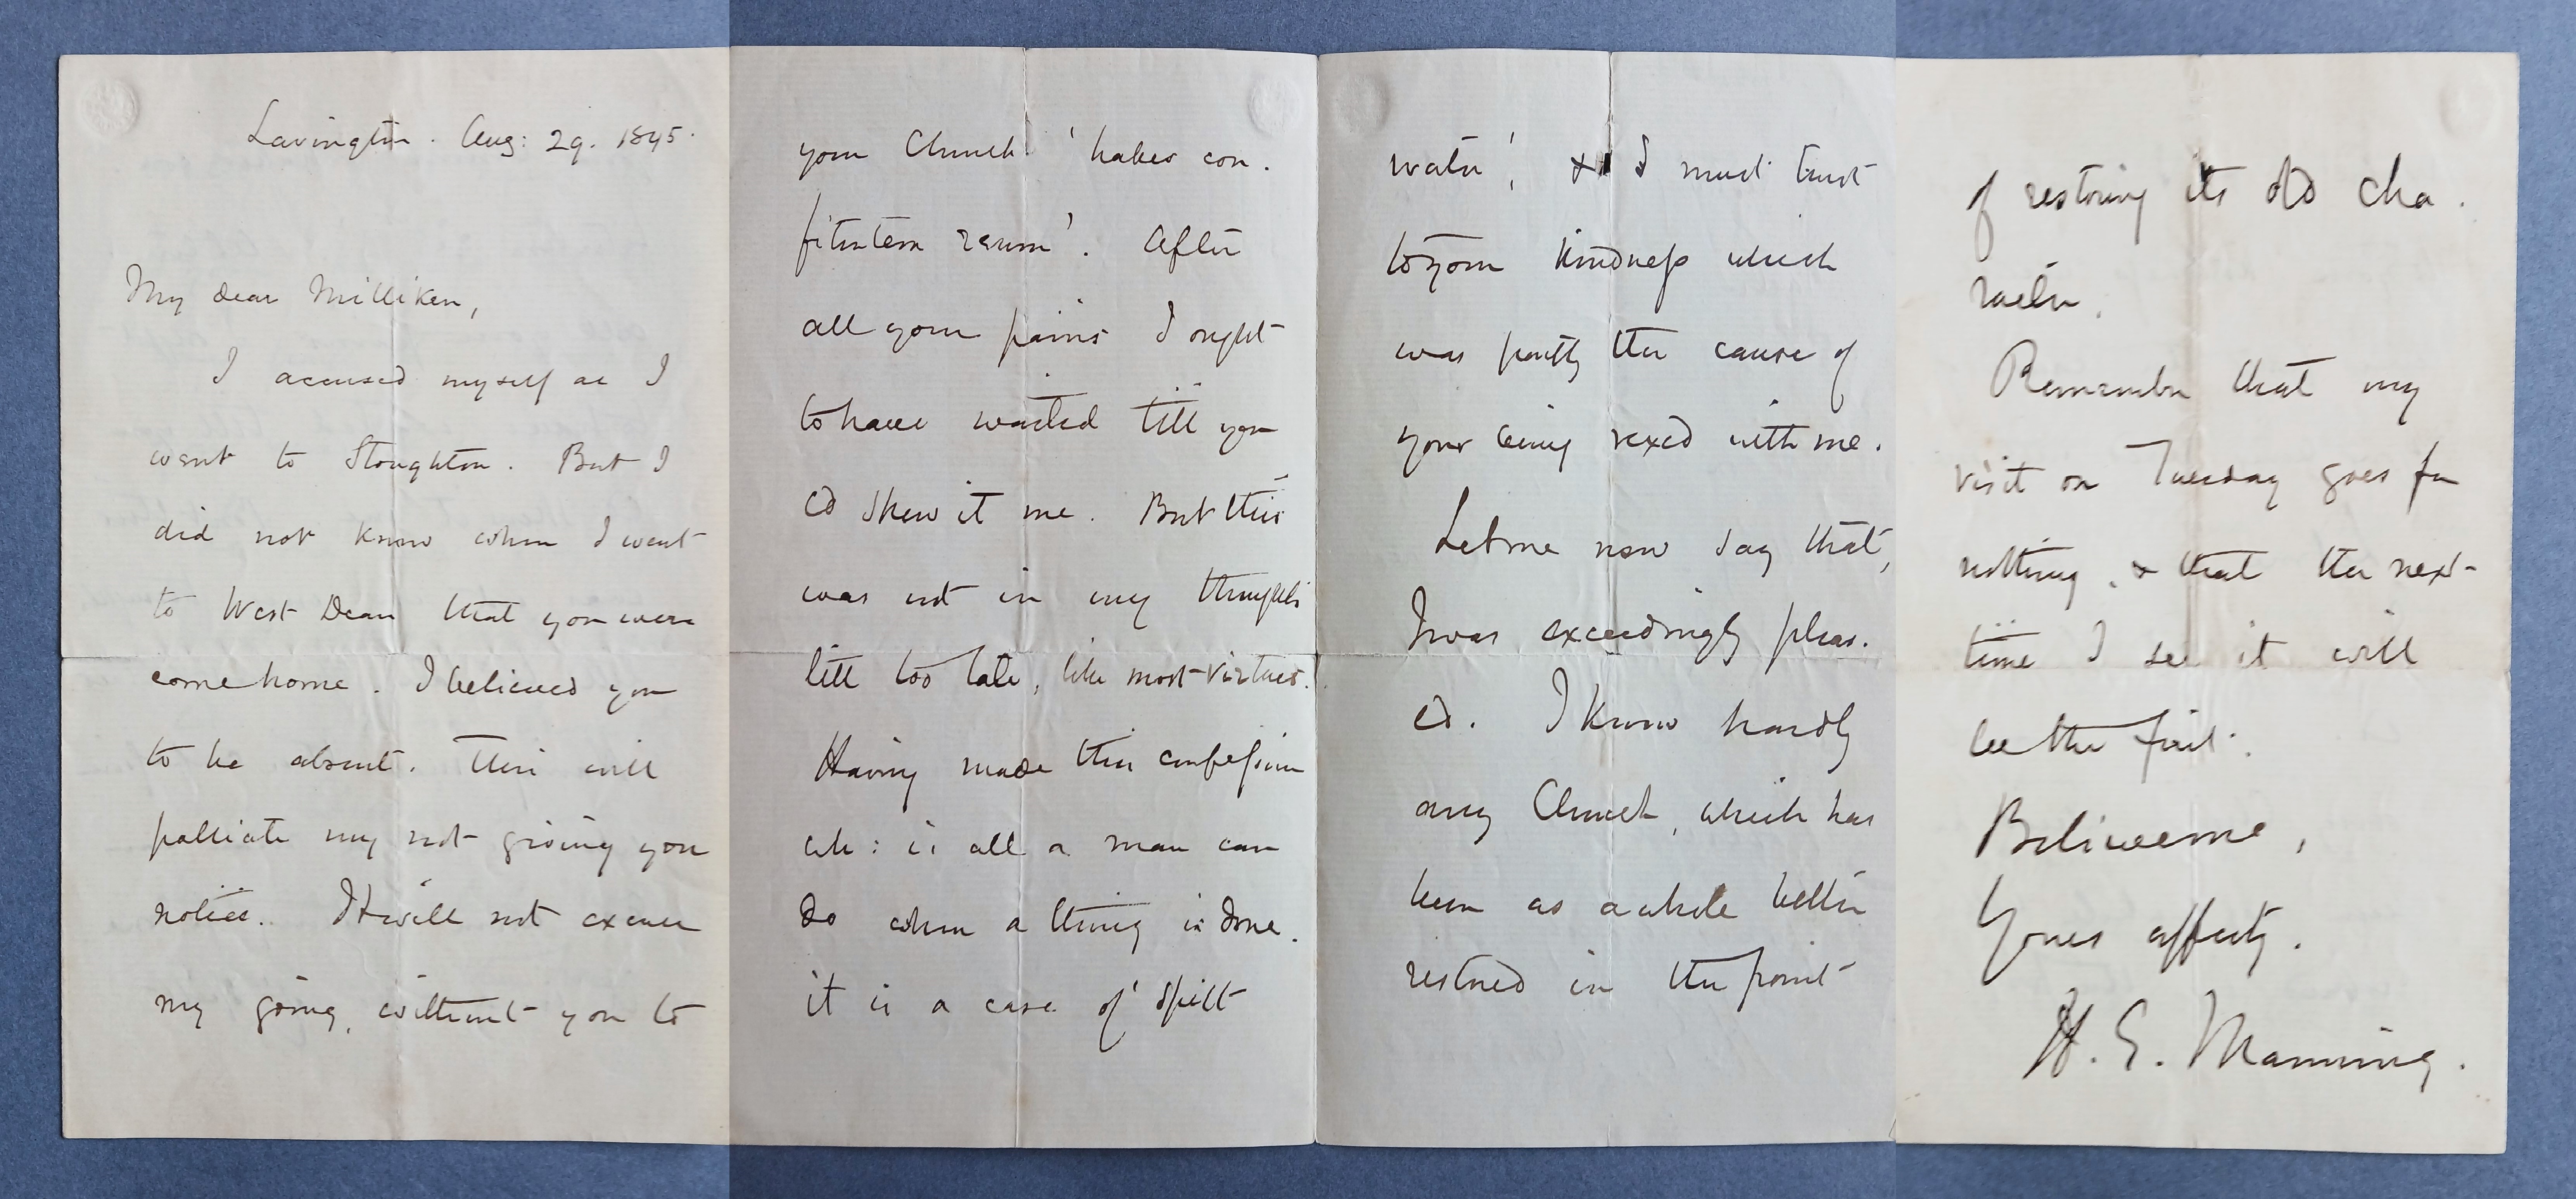 Lavington. Aug: 29. 1845.
My dear Milliken,
I accused myself as I
went to Stoughton. But I
did not know when I went
to West Dean that you were
come home. I believed you
to be absent. This will
palliate my not giving you
notice. It will not excuse
my going, without you to
your Church. 'habes con.
fitentem reum'. After
all your pains I ought
to have waited till you
cd shew it me. But this
was not in my thoughts
till too late, like most virtues.
Having made this confession
wh: is all a man can
do when a thing is done.
it is a case of 'spilt
water', & I must trust
to your kindness which
was partly the cause of
your being vexed with me.
Let me now say that,
I was exceedingly pleas.
ed. I know hardly
any Church, which has
been as a whole better
restored in the point
of restoring its old cha.
racter.
Remember that my
visit on Tuesday goes for
nothing, & that the next
time I see it will
be the first.
Believe me,
Yours affectly.
H. E. Manning.